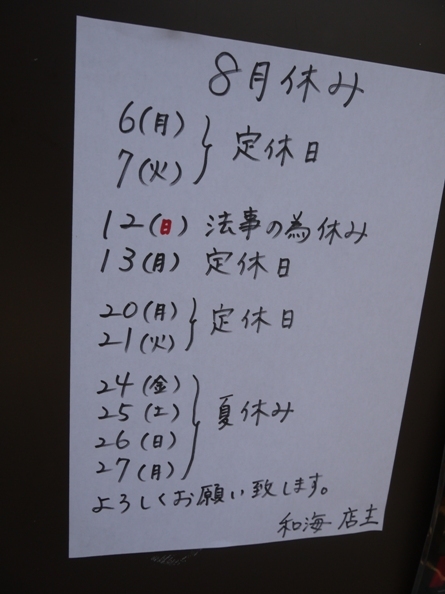 8月休み
6(月)
7(火) 定休日
12(日) 法事の為休み
13(月) 定休日
20(月)
21(火) 定休日
24(金)
25(土) 夏休み
26(日)
27(月)
よろしくお願い致します。
和海 店主